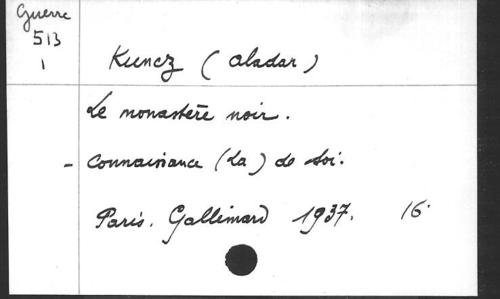 Guerre
513
1
Kuncz (Aladar)
Le monastère noir.
- Connaissance (La) de soi.
Paris. Gallimard 1937. 16°